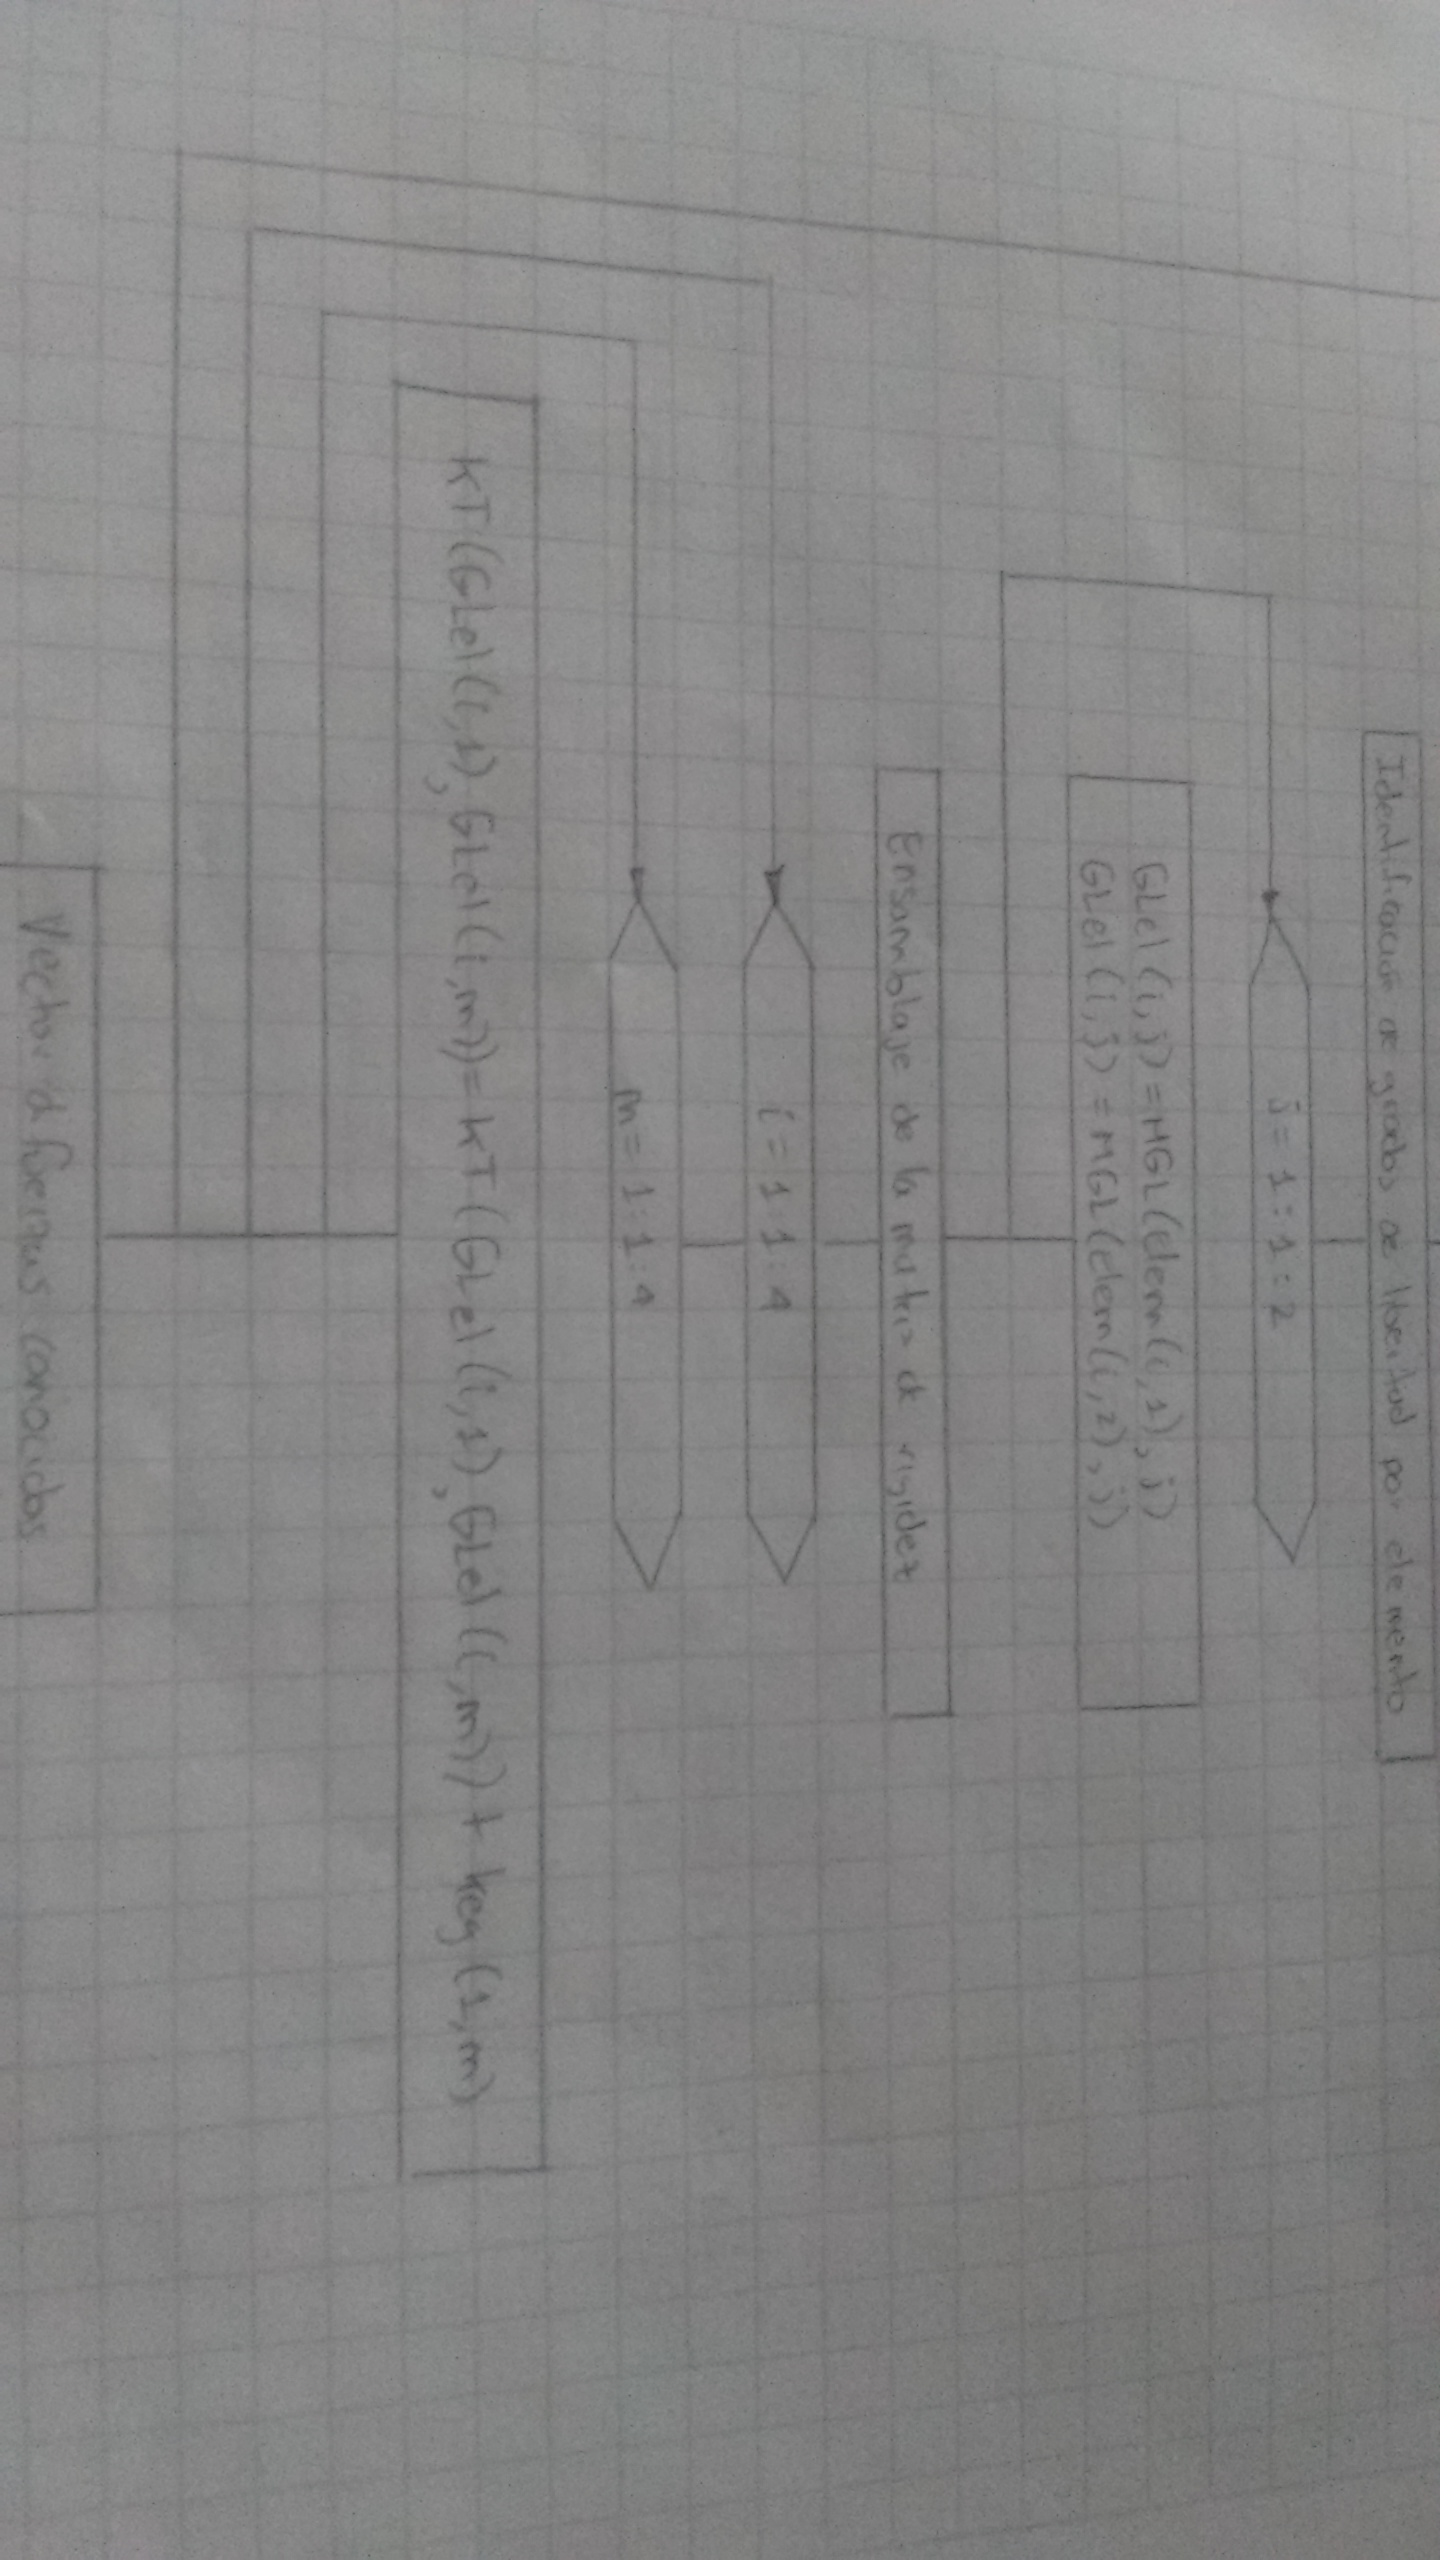 Identificación de grados de libertad por elemento
j = 1 : 1 : 2
GLel (i,j) = MGL (elem (i,1), j)
GLel (i,j) = MGL (elem (i,2), j)
Ensamblaje de la matriz de rigidez
i = 1 : 1 : 4
m = 1 : 1 : 4
KT (GLel (i,1), GLel (i,m)) = KT (GLel (i,1), GLel (i,m)) + keg (1,m)
Vector d fuerzas conocidos